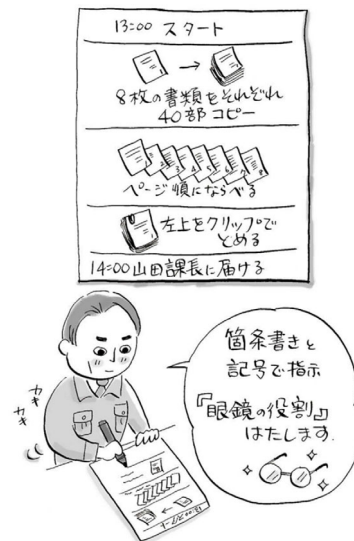 13:00 スタート
8枚の書類をそれぞれ
40部 コピー
1 2 3 4 5 6 7 8
ページ順にならべる
左上をクリップで
とめる
14:00 山田課長に届ける
箇条書きと
記号で指示
『眼鏡の役割』
はたします。
カキ
カキ